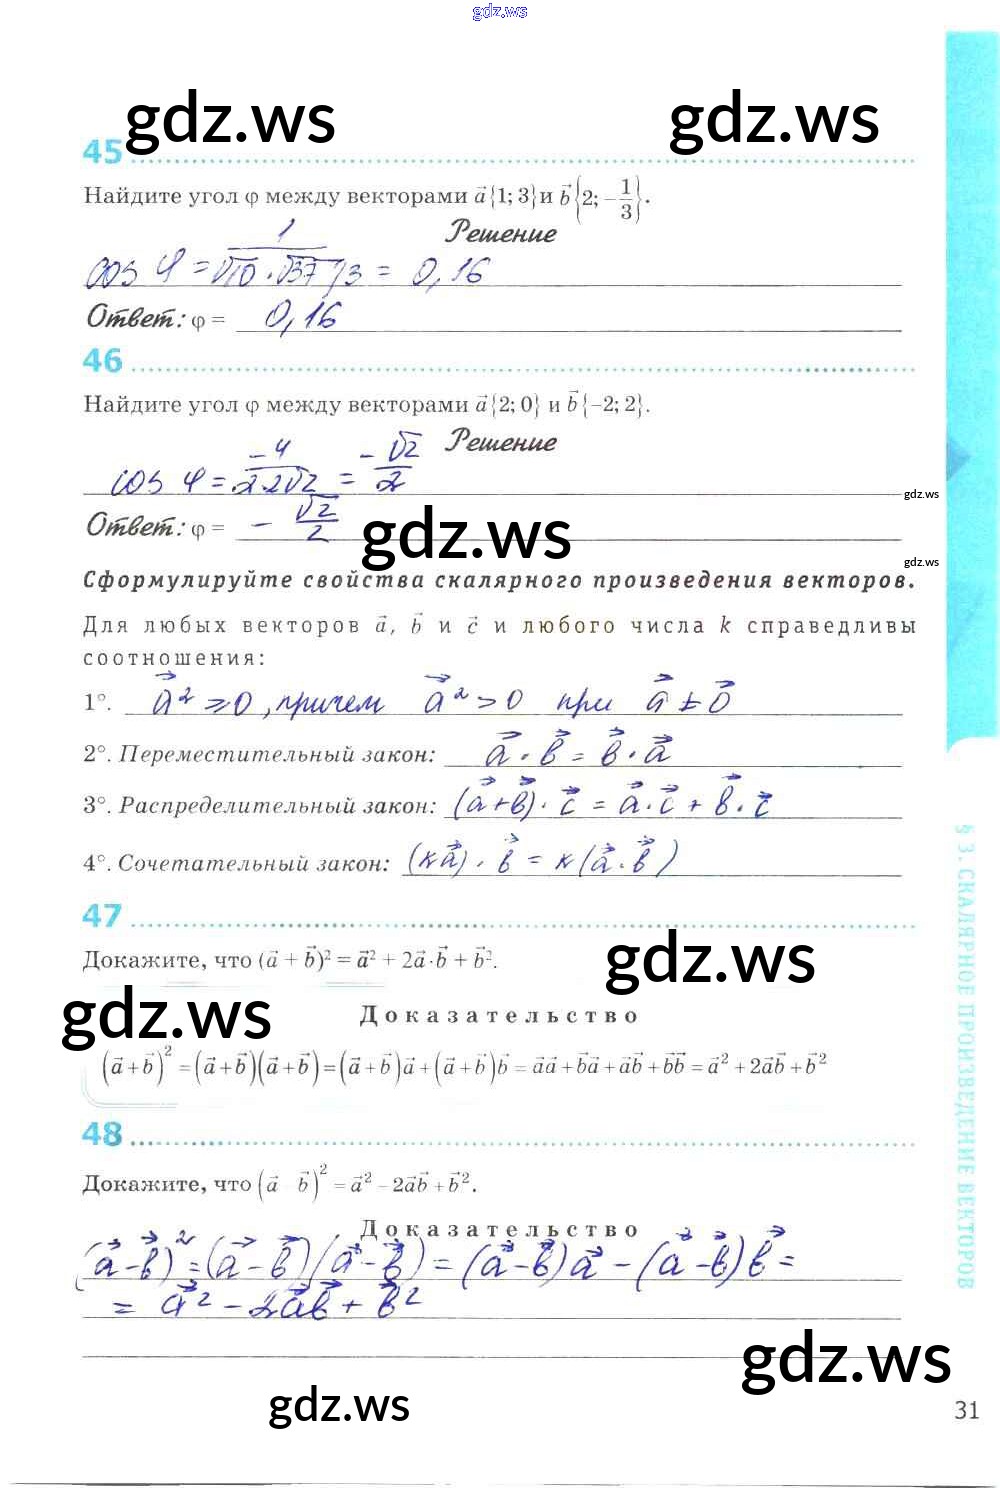 gdz.ws
gdz.ws gdz.ws
45
Найдите угол φ между векторами a⃗{1; 3} и b⃗{2; −1/3}.
Решение
cos φ = 1/(√10·√37/3) = 0,16
Ответ: φ = 0,16
46
Найдите угол φ между векторами a⃗{2; 0} и b⃗{−2; 2}.
Решение
cos φ = −4/(2·2√2) = −√2/2
gdz.ws
Ответ: φ = −√2/2
gdz.ws
gdz.ws
Сформулируйте свойства скалярного произведения векторов.
Для любых векторов a⃗, b⃗ и c⃗ и любого числа k справедливы
соотношения:
1°. a⃗² ⩾ 0, причем a⃗² > 0 при a⃗ ≠ 0⃗
2°. Переместительный закон: a⃗ · b⃗ = b⃗ · a⃗
3°. Распределительный закон: (a⃗ + b⃗) · c⃗ = a⃗ · c⃗ + b⃗ · c⃗
4°. Сочетательный закон: (ka⃗) · b⃗ = k(a⃗ · b⃗)
47
gdz.ws
Докажите, что (a⃗ + b⃗)² = a⃗² + 2a⃗·b⃗ + b⃗².
gdz.ws
Доказательство
(a⃗+b⃗)² = (a⃗+b⃗)(a⃗+b⃗) = (a⃗+b⃗)a⃗ + (a⃗+b⃗)b⃗ = a⃗a⃗ + b⃗a⃗ + a⃗b⃗ + b⃗b⃗ = a⃗² + 2a⃗b⃗ + b⃗²
48
Докажите, что (a⃗ b⃗)² = a⃗² − 2a⃗b⃗ + b⃗².
Доказательство
(a⃗−b⃗)² = (a⃗−b⃗)(a⃗−b⃗) = (a⃗−b⃗)a⃗ − (a⃗−b⃗)b⃗ =
= a⃗² − 2a⃗b⃗ + b⃗²
gdz.ws
gdz.ws
31
§ 3. СКАЛЯРНОЕ ПРОИЗВЕДЕНИЕ ВЕКТОРОВ